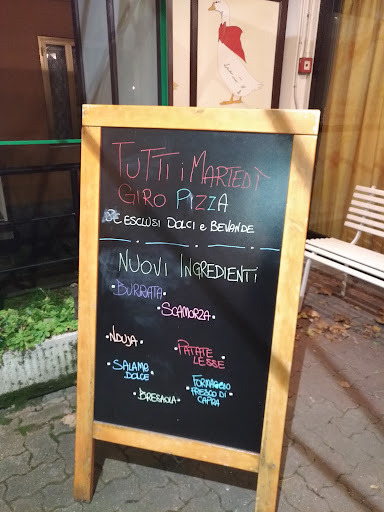 TUTTI i MARTEDÌ
GIRO PIZZA
ESCLUSI DOLCI e BEVANDE
NUOVI INGREDIENTI
• BURRATA •
• SCAMORZA •
• NDUJA
• PATATE LESSE •
• SALAME DOLCE •
• FORMAGGIO FRESCO DI CAPRA •
• BRESAOLA •